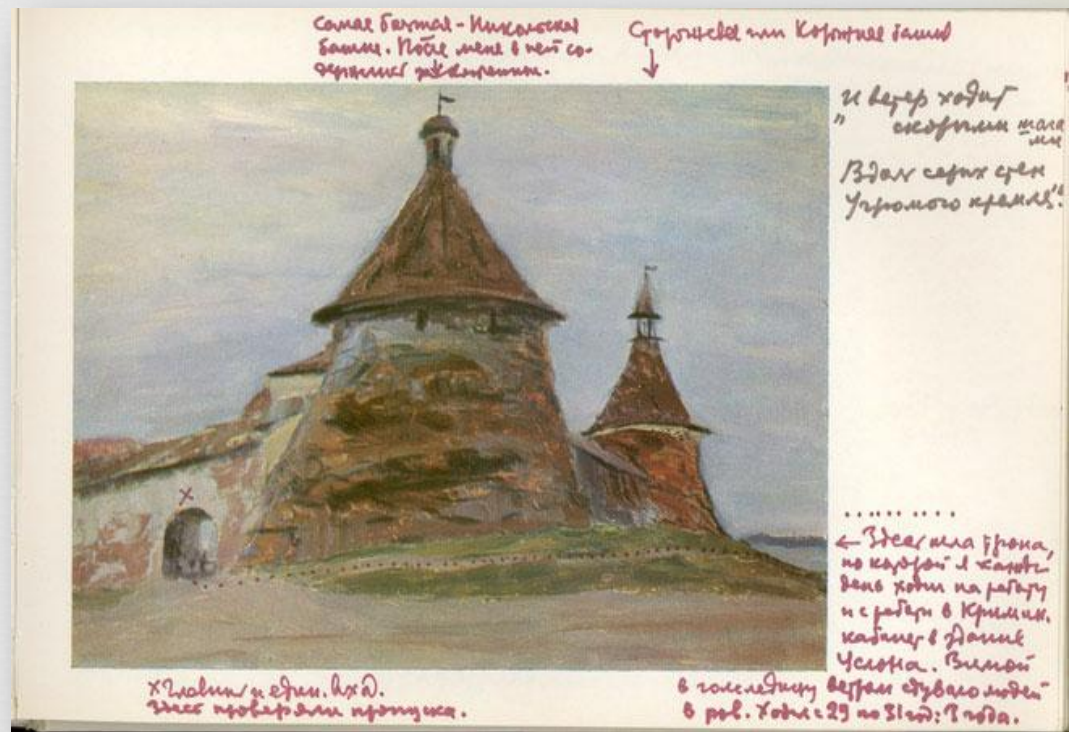 Самая - Никольская
башня. После меня в ней со-
держались
Сторожевая или Корожная башня
"И ветер ходит
скорыми шага
ми
Вдоль серых стен
Угрюмого кремля".
х
.........
← Здесь шла тропа,
по которой я каждый
день ходил на работу
и с работы в Кримин.
кабинет в здание
Услона. Зимой
в гололедицу ветром сдувало людей
в ров. Ходил с 29 по 31 год: 3 года.
х Главный и един. вход.
Здесь проверяли пропуска.